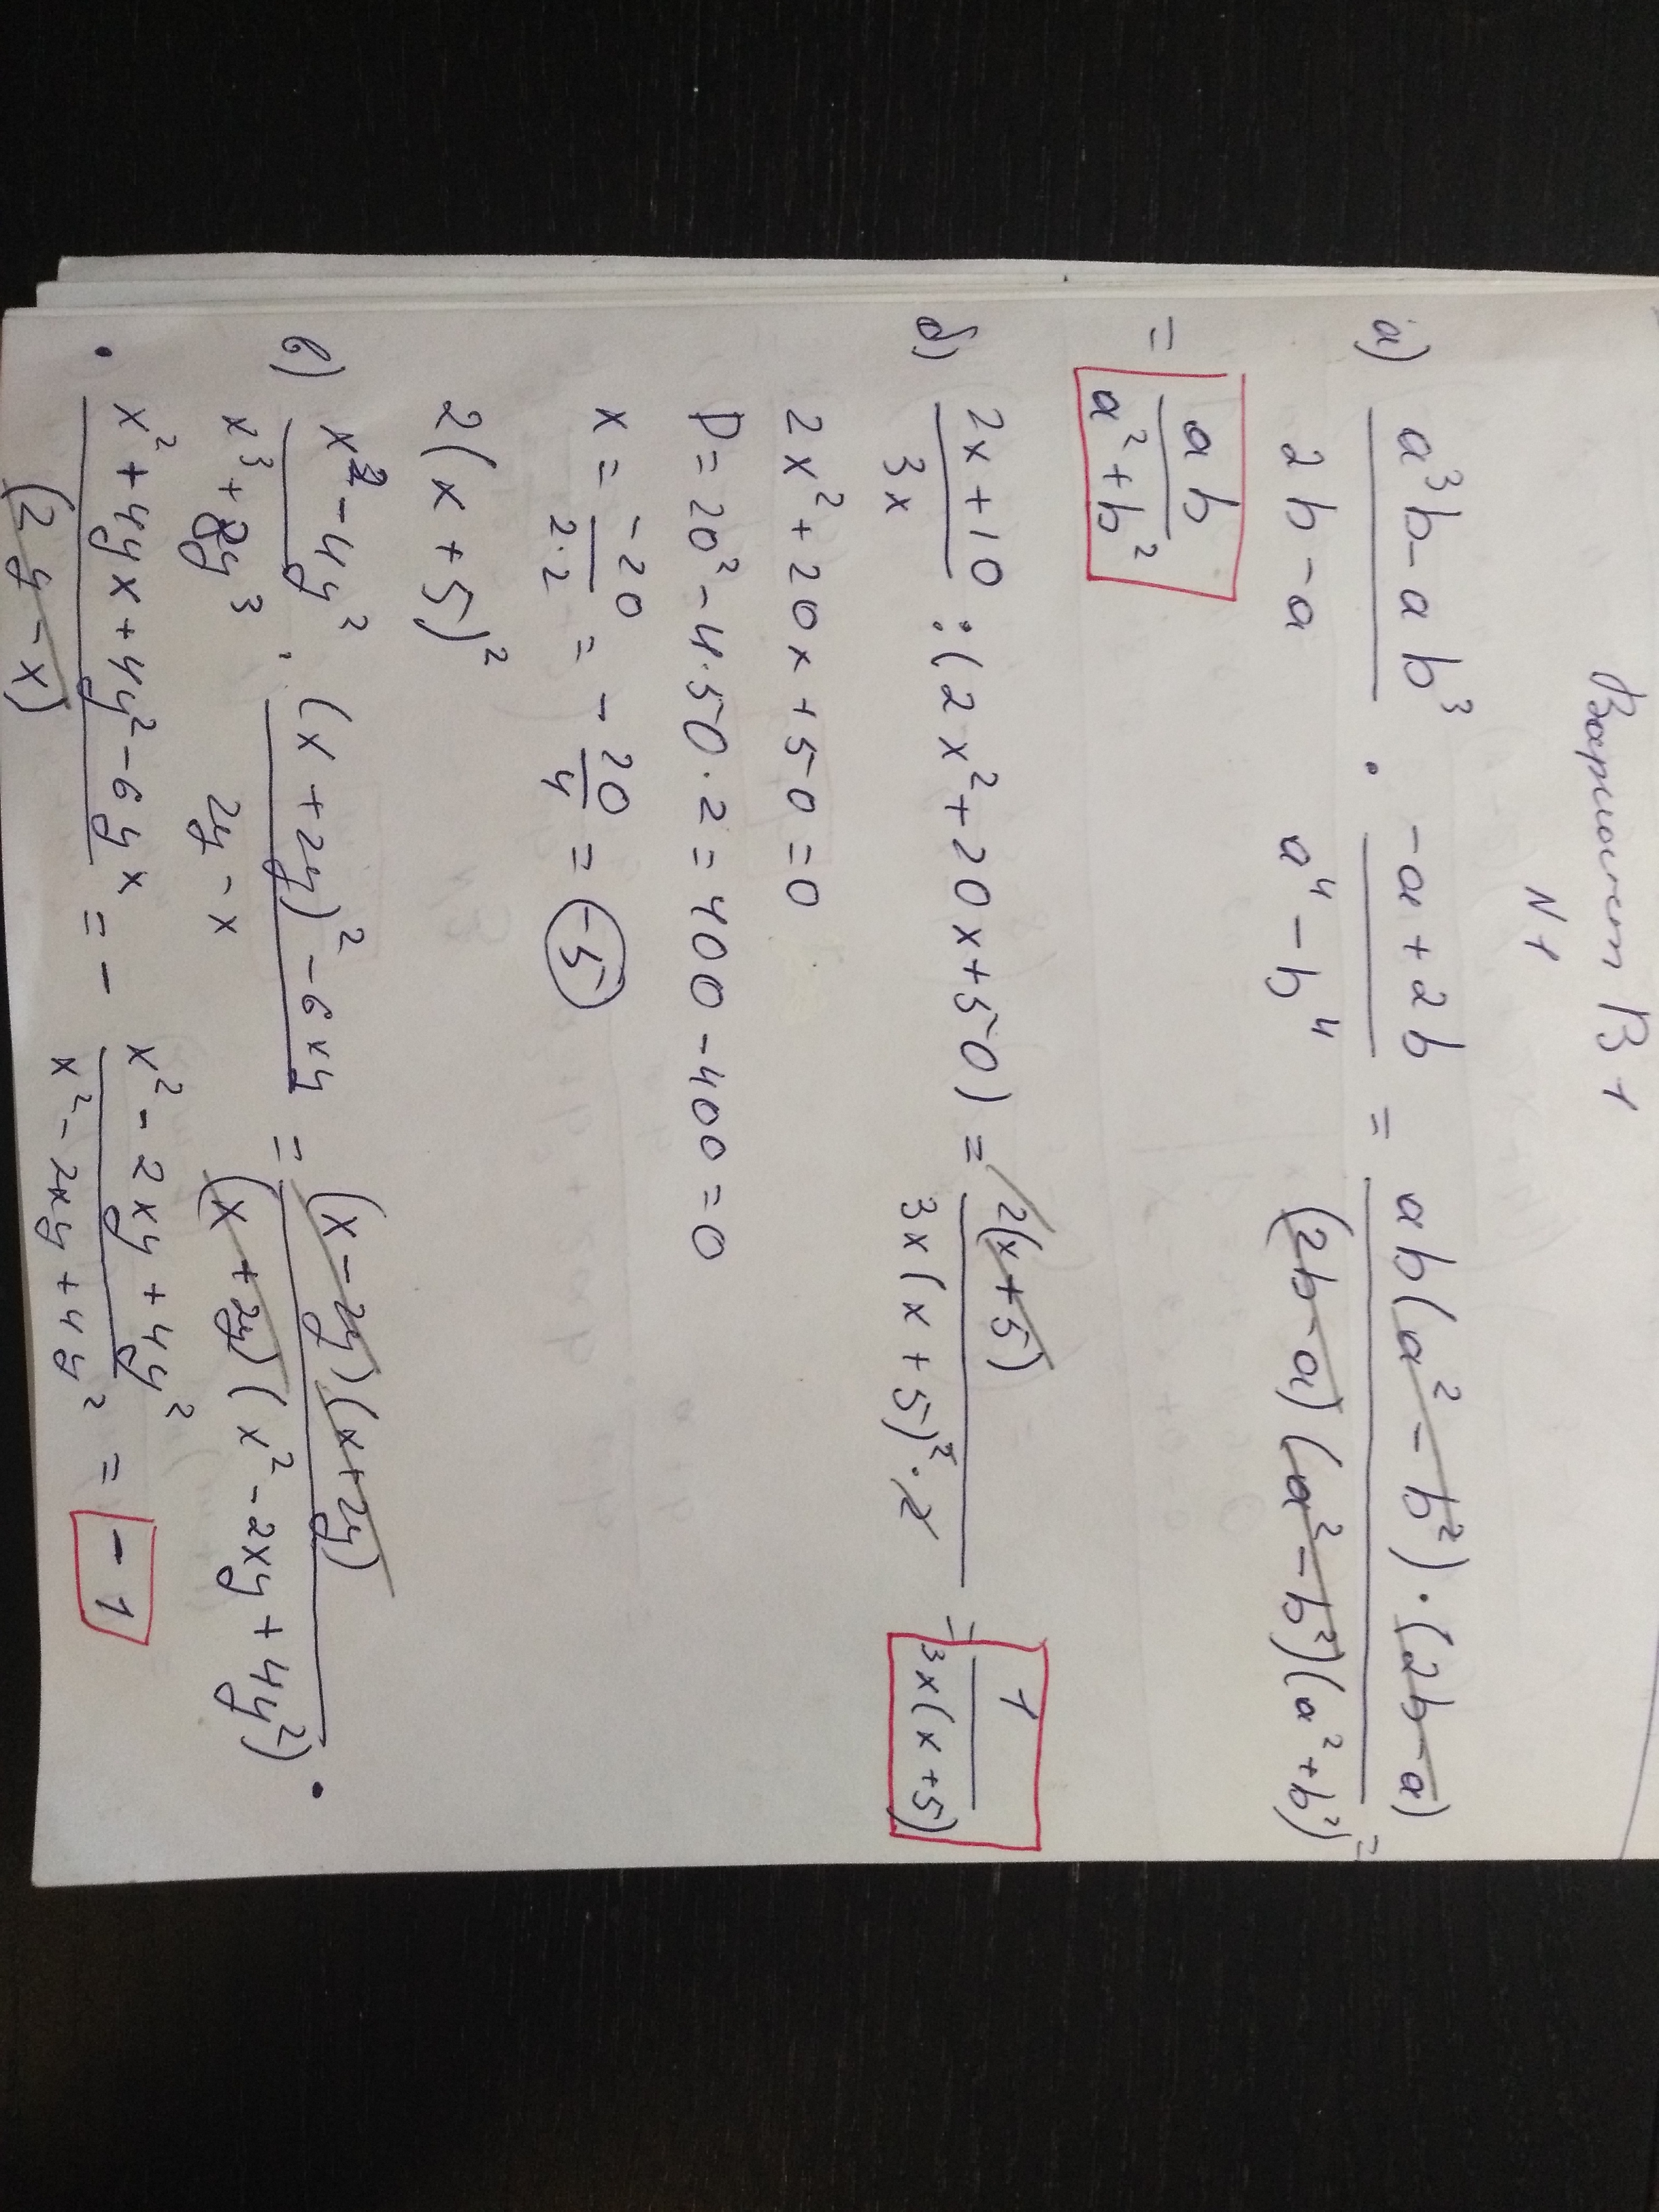 Вариант В1
N1
а) (a³b - ab³)/(2b - a) · (-a + 2b)/(a⁴ - b⁴) = (ab(a² - b²) · (2b - a))/((2b - a)(a² - b²)(a² + b²)) =
= ab/(a² + b²)
б) (2x + 10)/(3x) : (2x² + 20x + 50) = (2(x + 5))/(3x(x + 5)² · 2) = 1/(3x(x + 5))
2x² + 20x + 50 = 0
D = 20² - 4·50·2 = 400 - 400 = 0
x = (-20)/(2·2) = -20/4 = -5
2(x + 5)²
в) (x² - 4y²)/(x³ + 8y³) · ((x + 2y)² - 6xy)/(2y - x) = ((x - 2y)(x + 2y))/((x + 2y)(x² - 2xy + 4y²)) ·
· (x² + 4yx + 4y² - 6yx)/(2y - x) = - (x² - 2xy + 4y²)/(x² - 2xy + 4y²) = -1